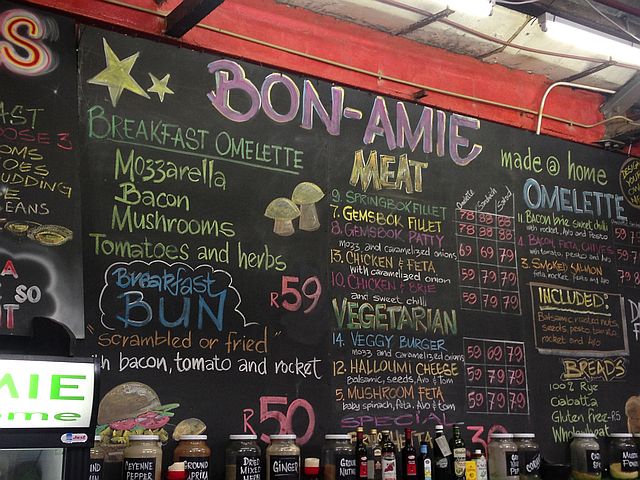 S
AST
OSE 3
OMS
OES
UDDING
EANS
A
SO
IT
MIE
ome
BON-AMIE
BREAKFAST OMELETTE
Mozzarella
Bacon
Mushrooms
Tomatoes and herbs
R59
Breakfast
BUN
"scrambled or fried"
bacon, tomato and rocket
R50
MEAT
Omelette Sandwich Salad
9. SPRINGBOK FILLET 78 88 88
7. GEMSBOK FILLET 78 88 88
8. GEMSBOK PATTY 69 69 79
mozz and caramelized onions
13. CHICKEN & FETA 59 79 79
with caramelized onion
10. CHICKEN & BRIE 59 79 79
and sweet chilli
VEGETARIAN
14. VEGGY BURGER 59 69 79
mozz and caramelized onions
12. HALLOUMI CHEESE 59 79 79
Balsamic, seeds, Avo & tom
5. MUSHROOM FETA 59 69 79
baby spinach, feta, Avo & tom
SPECIA
30
made @ home
OMELETTE
11. BACON brie sweet chilli
with rocket, Avo and Pesto
4. BACON, FETA, CHIVES
with tomato, pesto and Avo
3. SMOKED SALMON
feta, rocket, pesto and Avo
INCLUDED:
Balsamic roasted nuts
Seeds, pesto, tomato
rocket and Avo
BREADS
100% Rye
Ciabatta
Gluten free-R5
Wholewheat
CAYENNE
PEPPER
GROUND
PAPRIKA
DRIED
MIXED
HERBS
GINGER
GROUND
NUTMEG